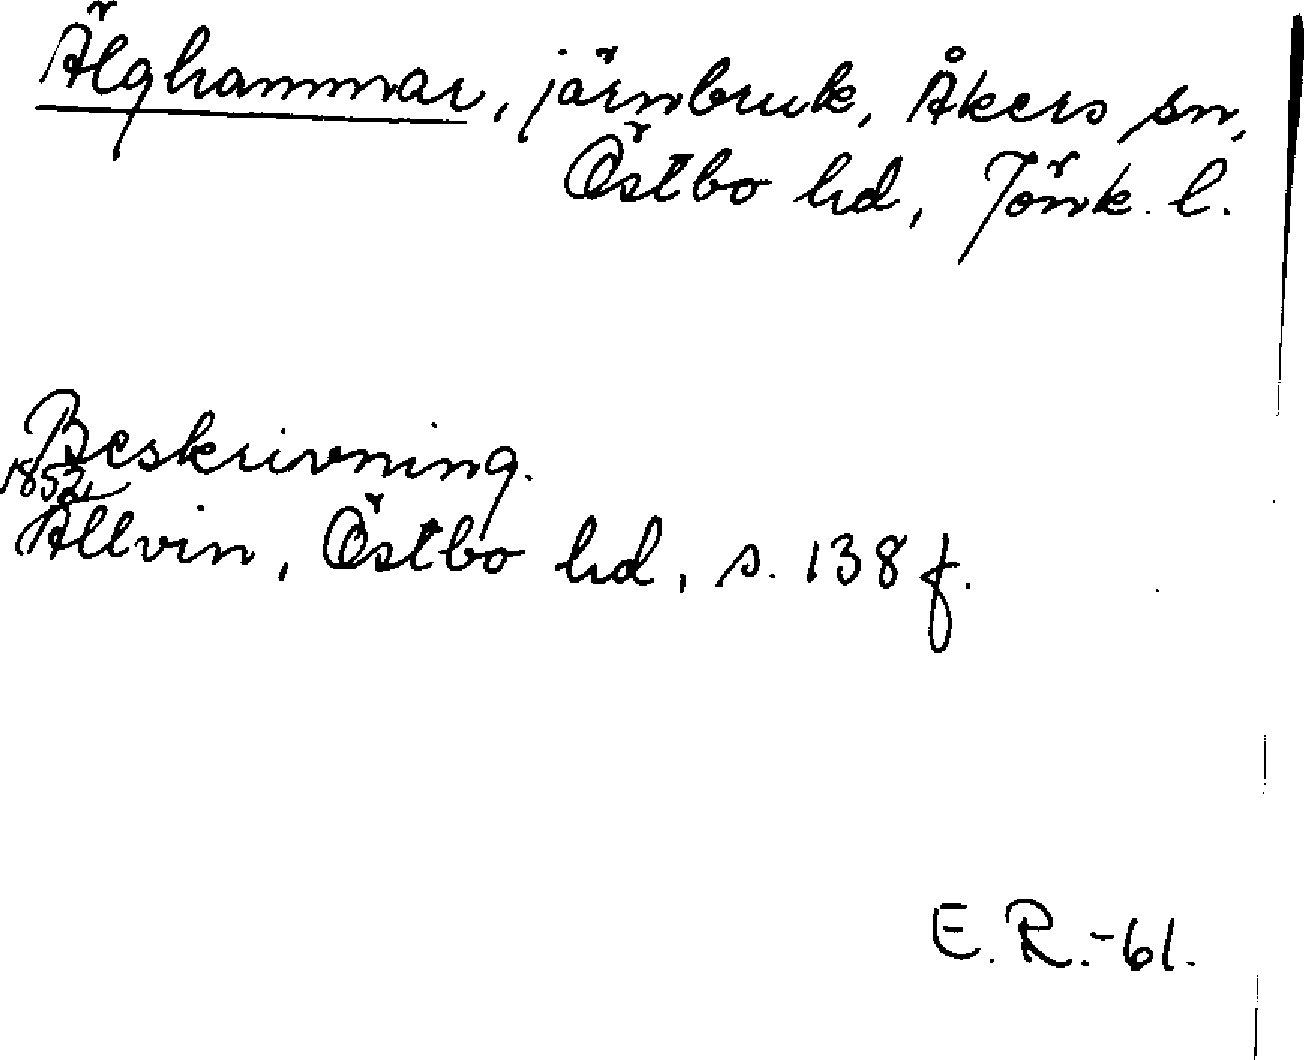 Älghammar, järnbruk, Åkers sn,
Östbo hd, Jönk. l.
Beskrivning.
1852,
Allvin, Östbo hd, s. 138 f.
E. R.-61.